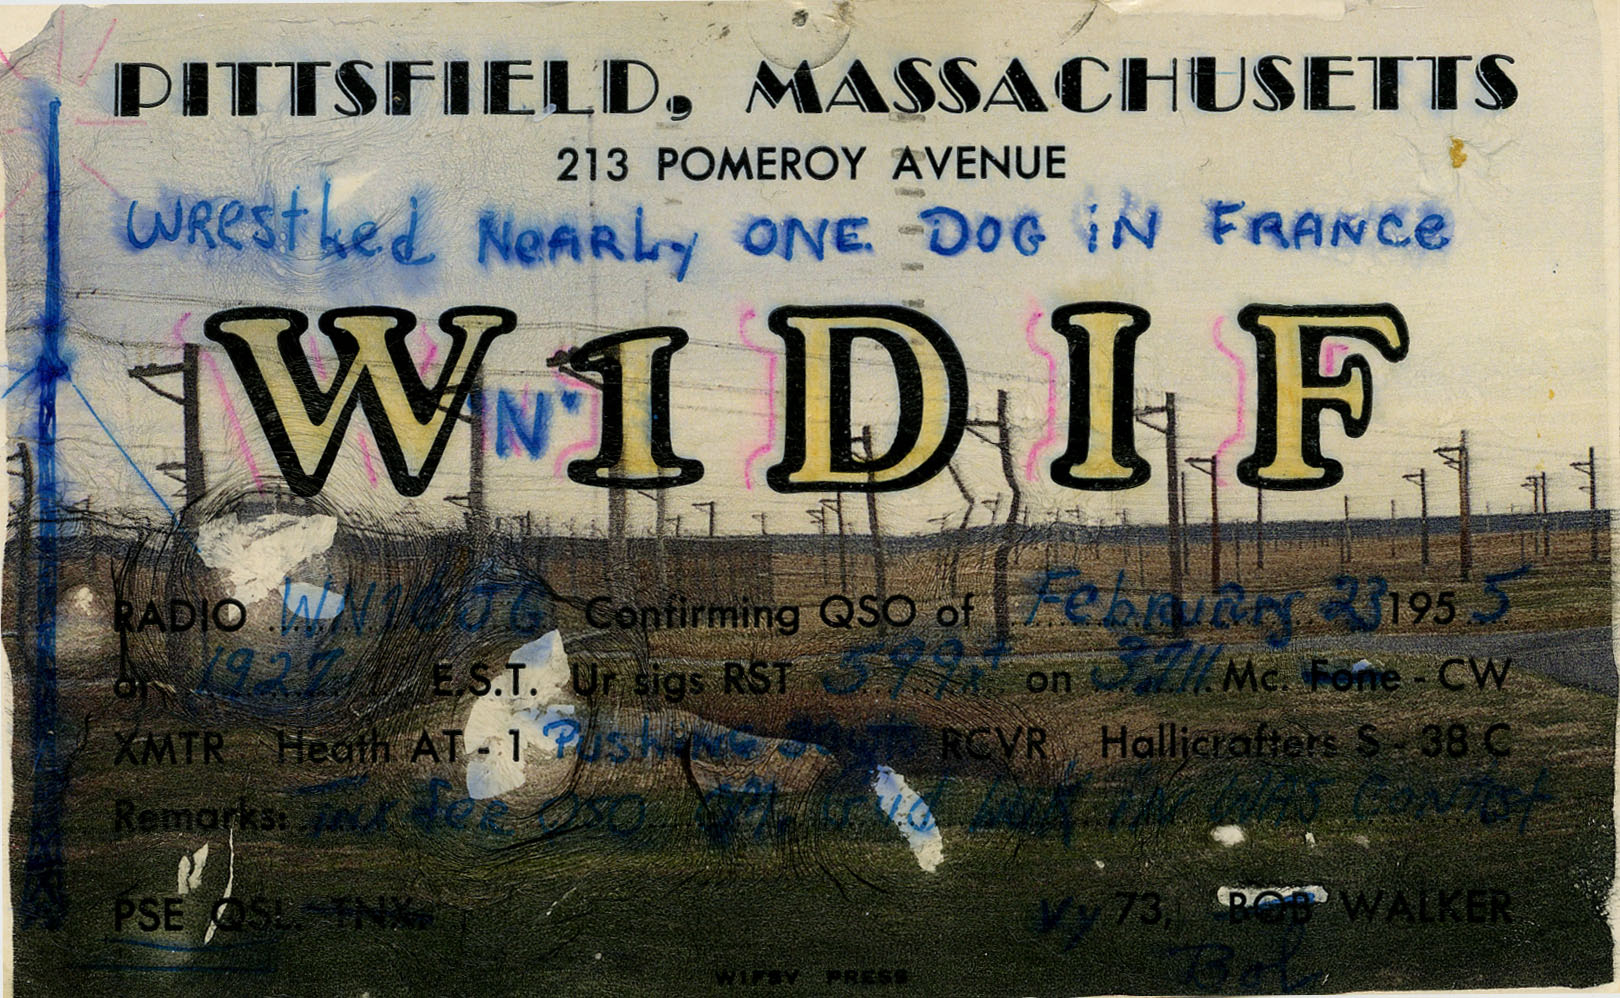 PITTSFIELD, MASSACHUSETTS
213 POMEROY AVENUE
WRestled NeARLy ONE DOG iN FRANCe
W "N" 1 D I F
RADIO Confirming QSO of February 23 195 5
at 1927 E.S.T. Ur sigs RST 599x on 3711 Mc. Fone - CW
XMTR Heath AT - 1 Pushing RCVR Hallicrafters S - 38 C
Remarks: Tnx fer QSO OM Gud luck in WAS CONTest
PSE QSL. TNX.
Vy 73, BOB WALKER
Bob
W1FSV PRESS